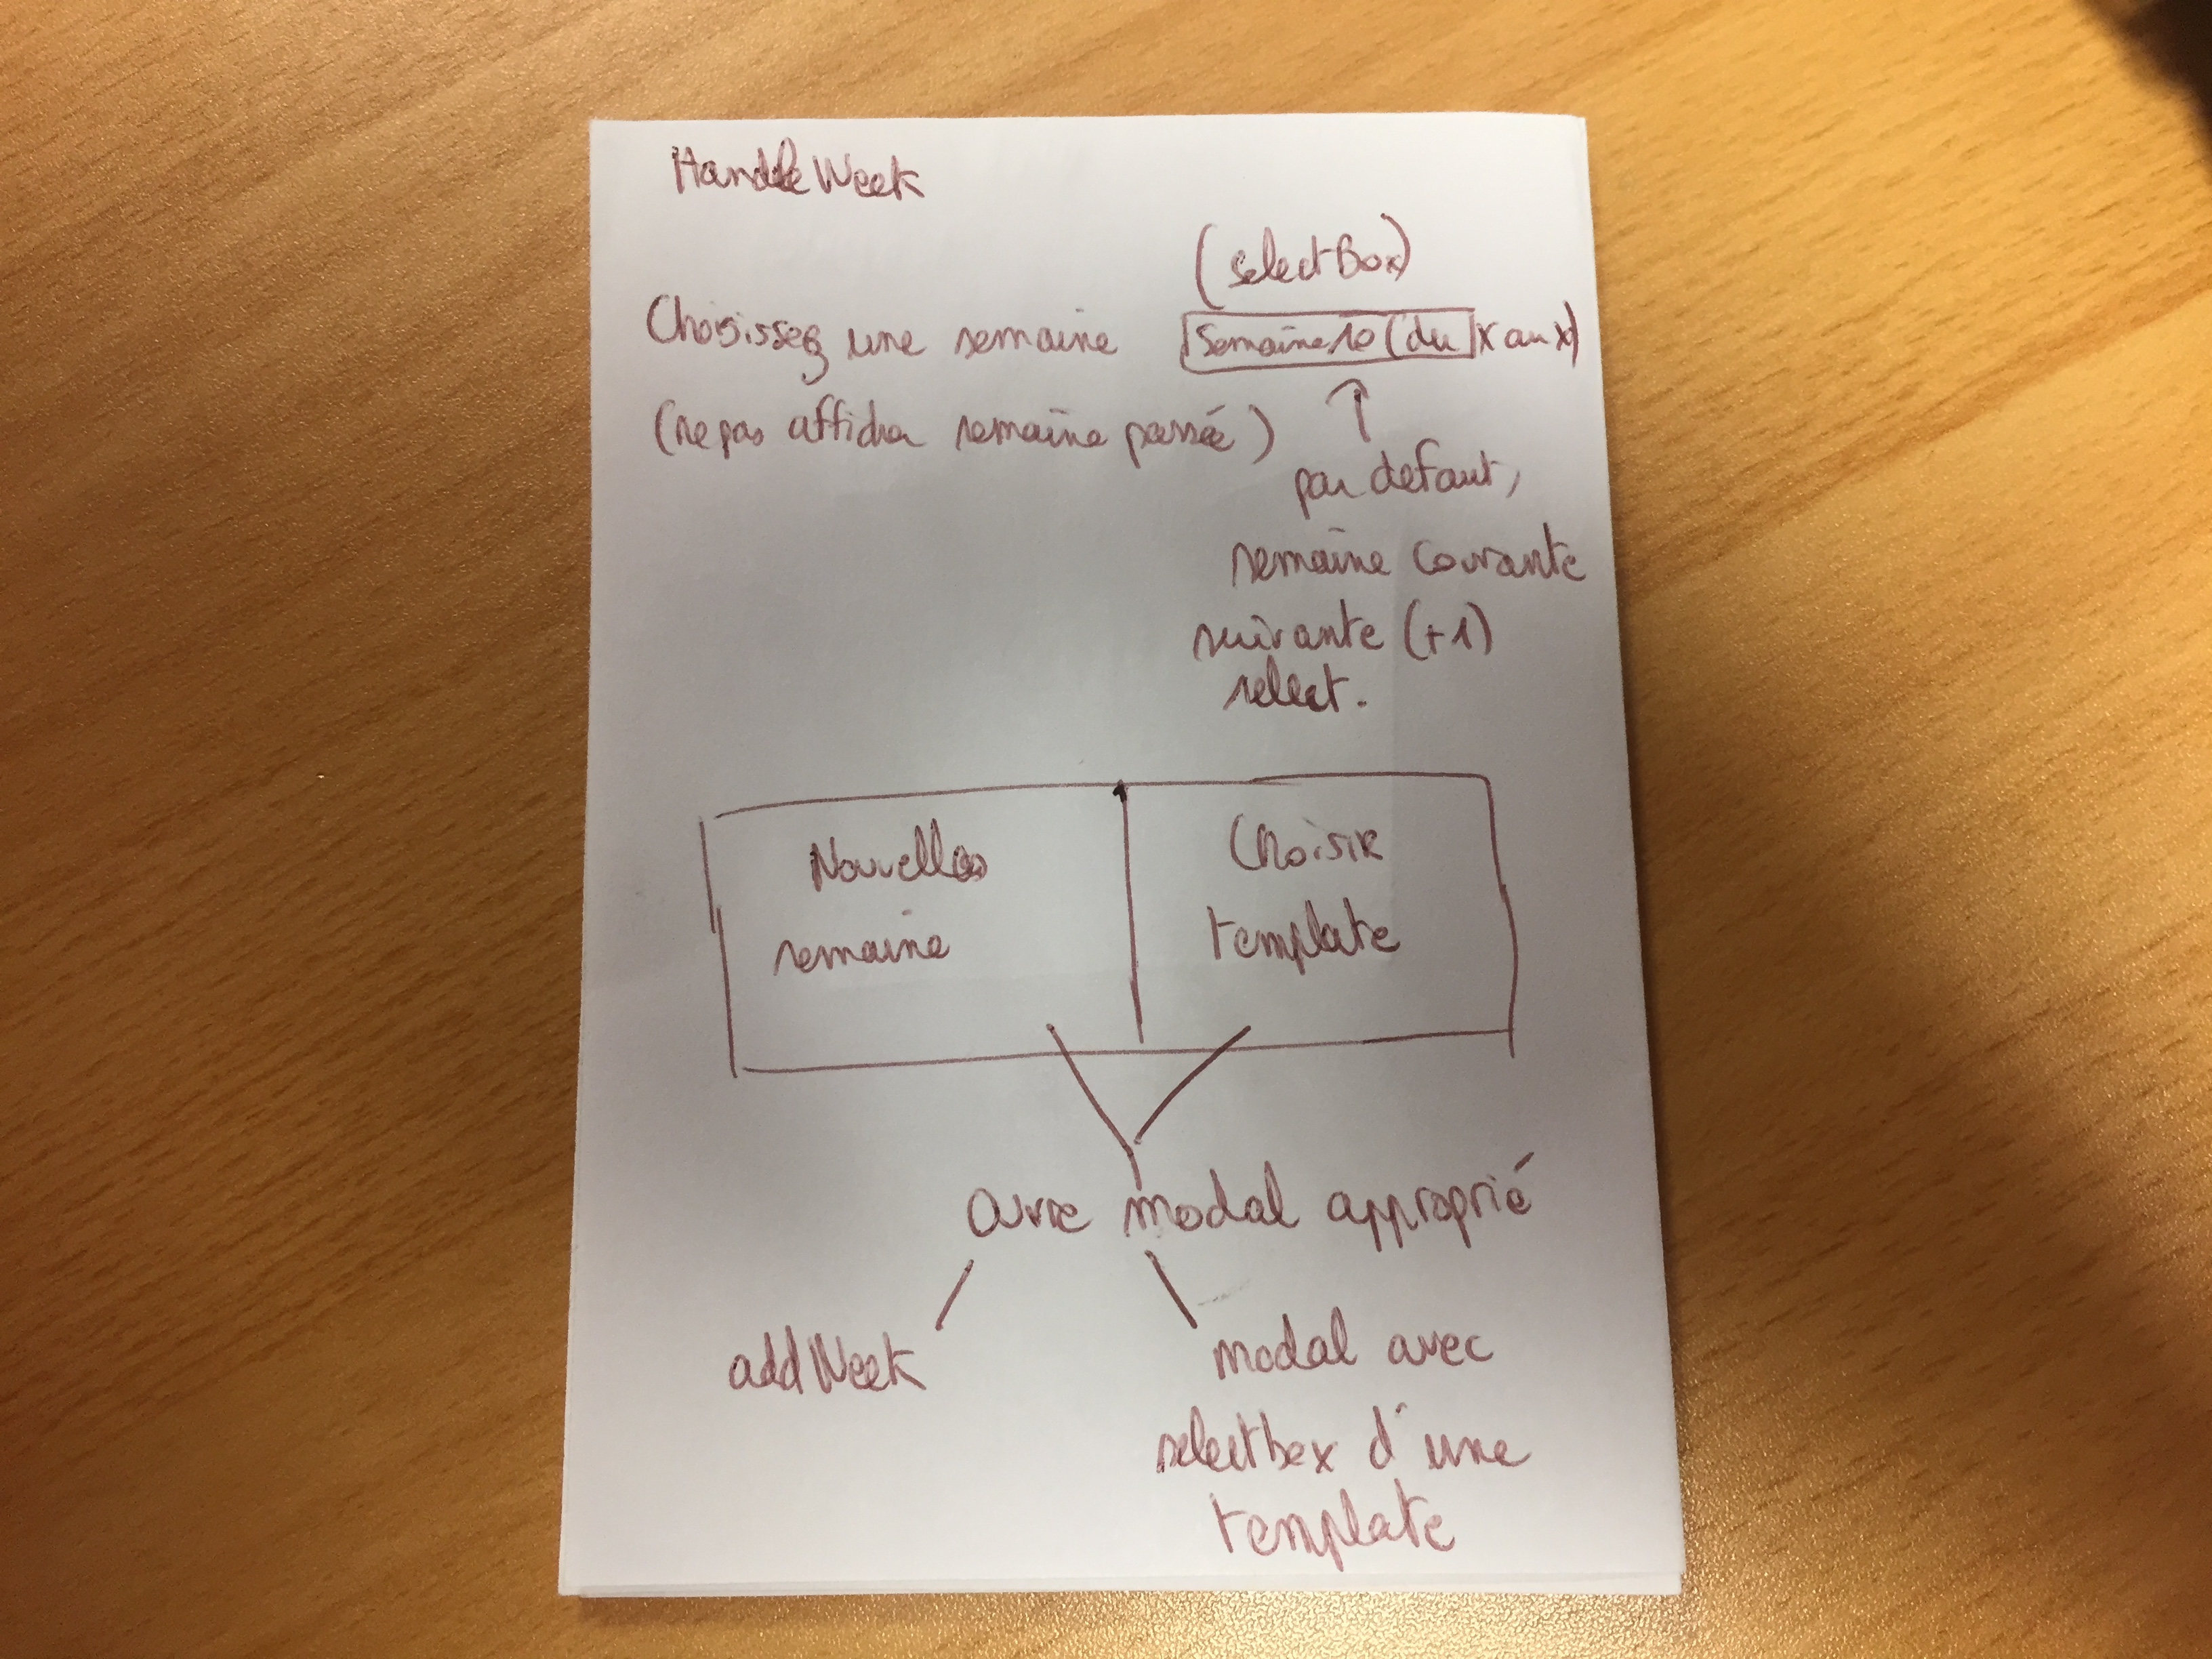 HandleWeek
(selectBox)
Choisissez une semaine Semaine 10 (du x au x)
(ne pas afficher semaine passée)
par defaut,
semaine courante
suivante (+1)
select.
Nouvelle
semaine
Choisir
template
ouvre modal approprié
addWeek
modal avec
selectbox d'une
template